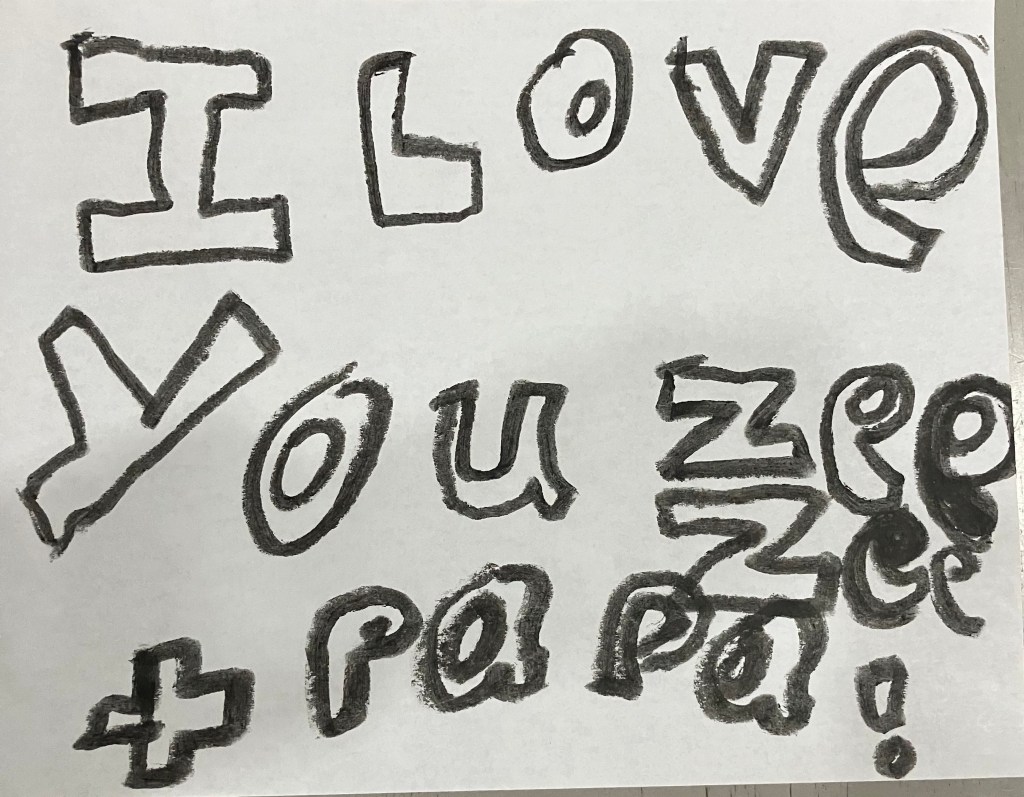 I Love
You Zee
Zee
+ PaPa!